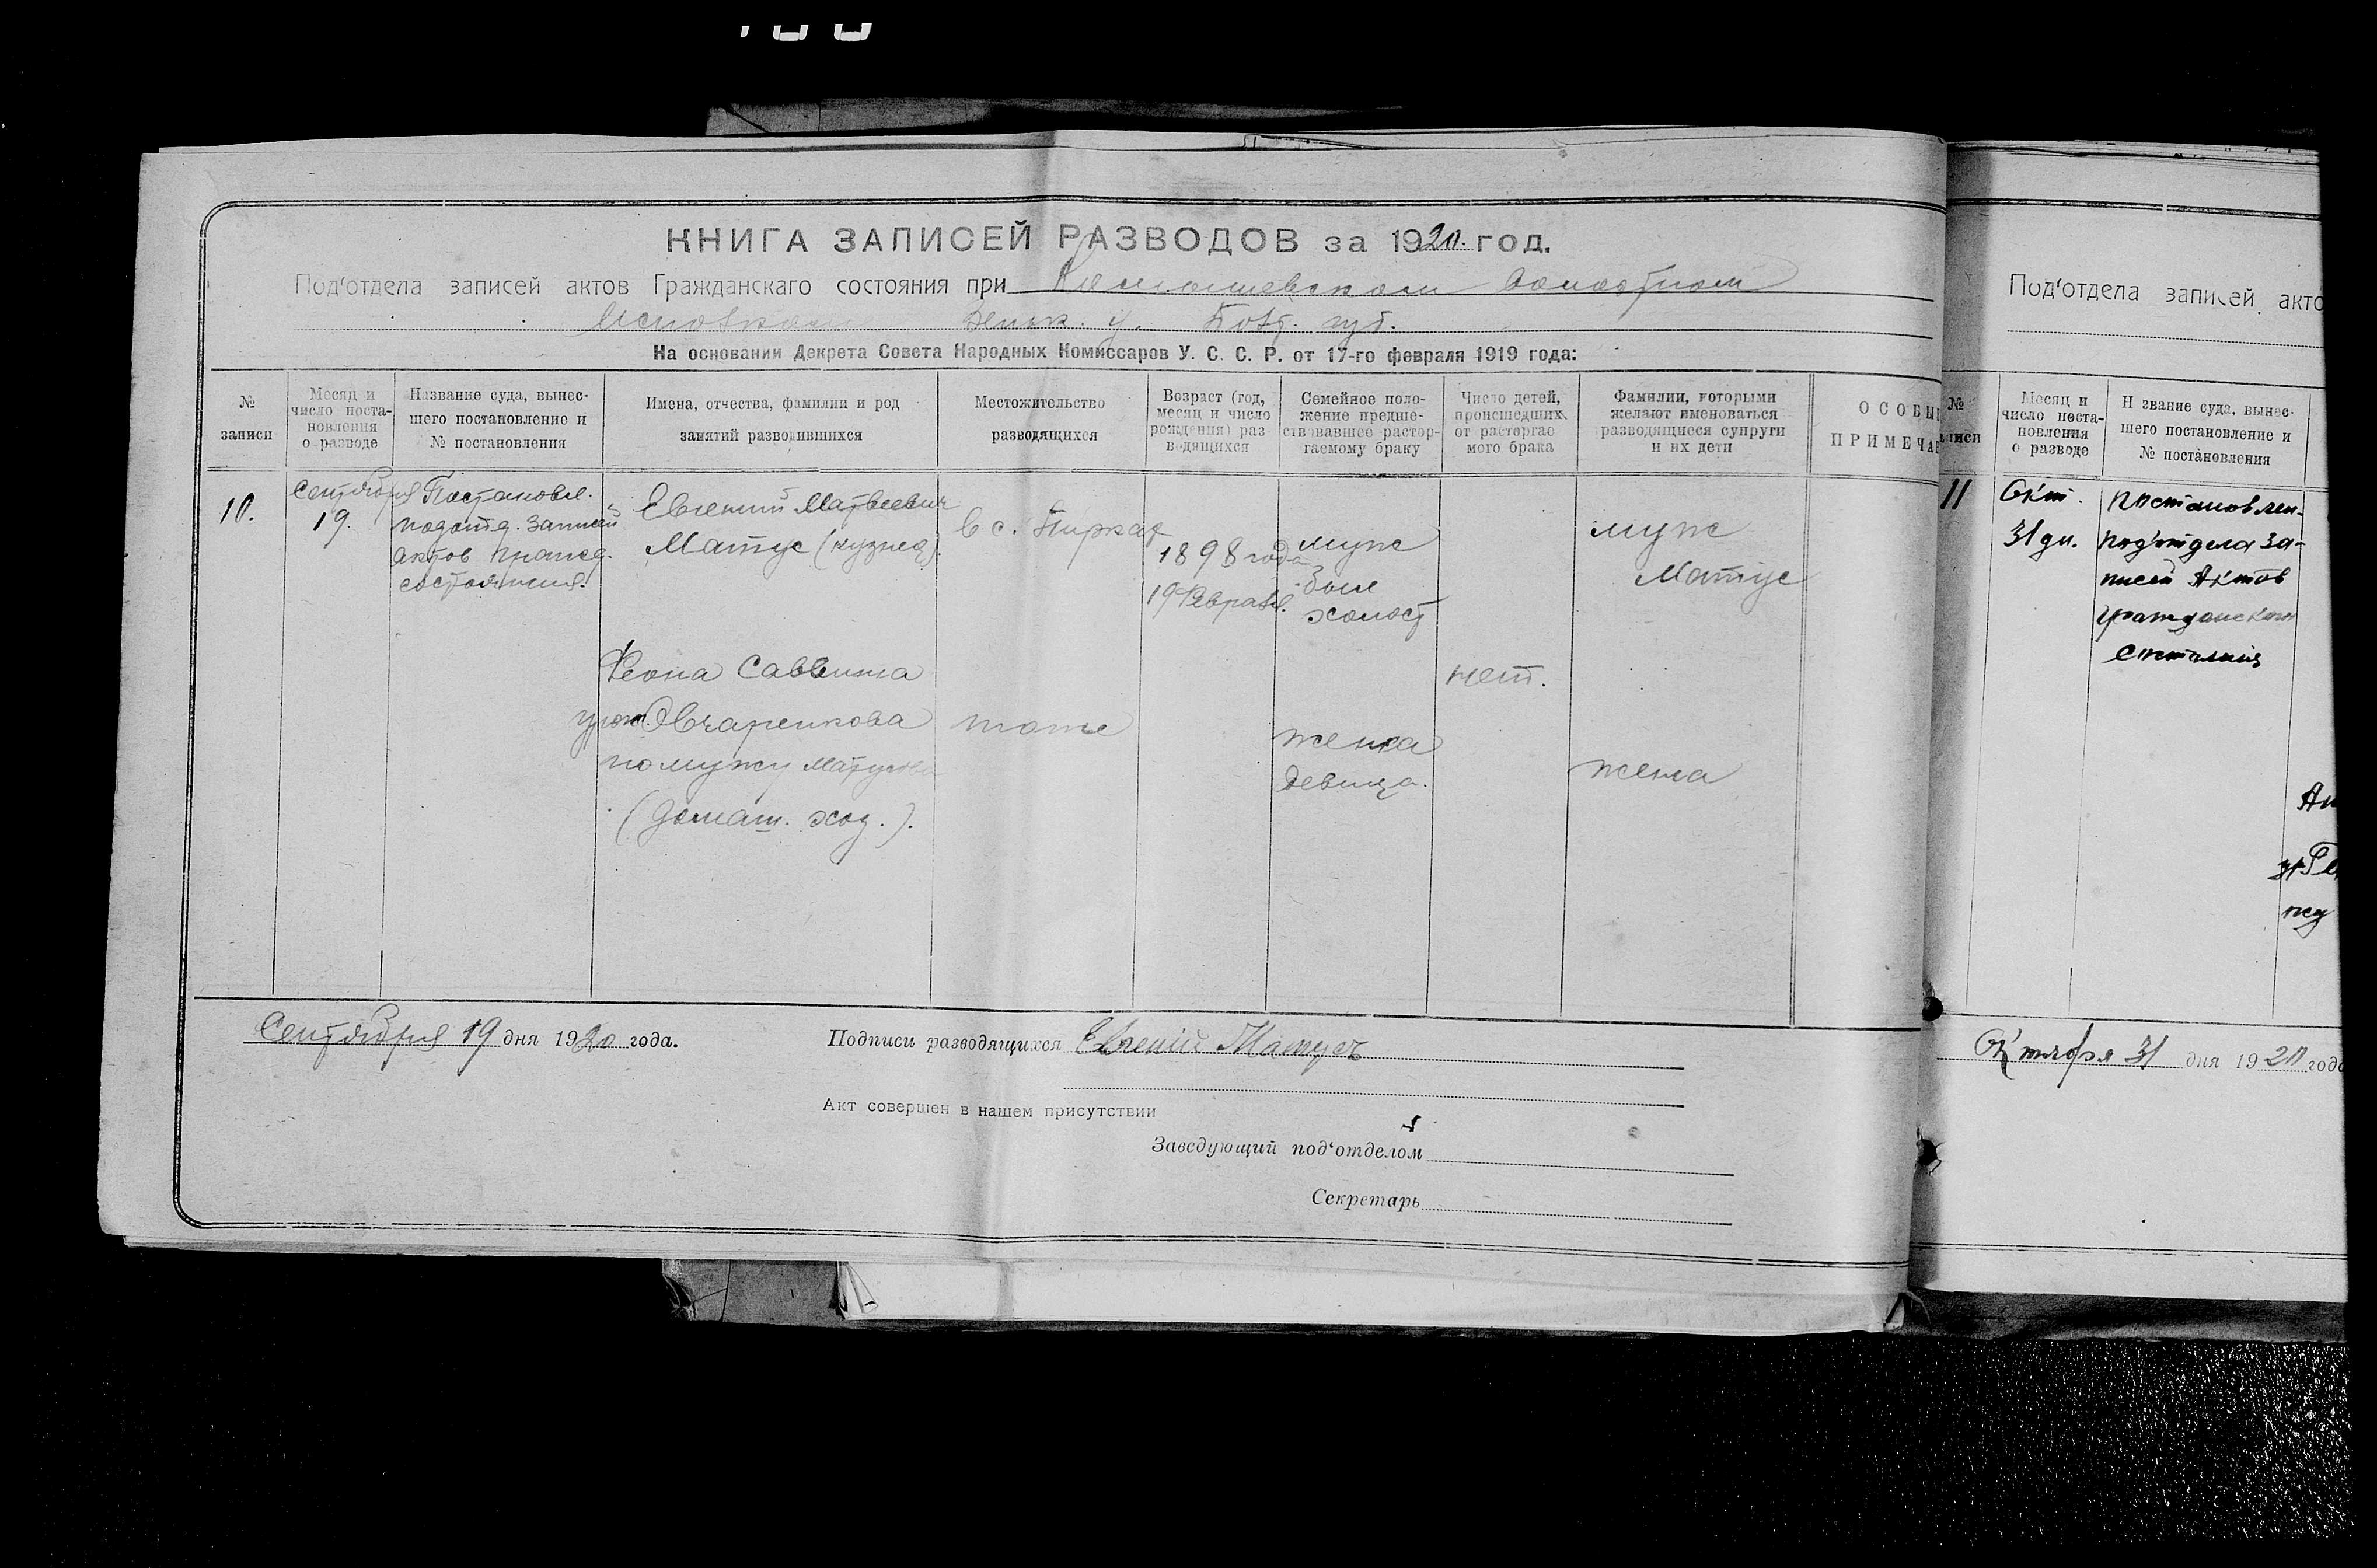 КНИГА ЗАПИСЕЙ РАЗВОДОВ за 1920. год.
Под'отдела записей актов Гражданскаго состояния при
Зеньк. у. Полт. губ.
На основании Декрета Совета Народных Комиссаров У. С. С. Р. от 17-го февраля 1919 года:
№ записи
Месяц и число поста-новления о разводе
Название суда, вынес-шего постановление и № постановления
Имена, отчества, фамилии и род занятий разводившихся
Местожительство разводящихся
Возраст (год, месяц и число рождения) раз-водящихся
Семейное поло-жение предше-ствовавшее растор-гаемому браку
Число детей, происшедших от расторгае мого брака
Фамилии, которыми желают именоваться разводящиеся супруги и их дети
ОСОБЫ
ПРИМЕЧА
10.
Сентября
19.
Постановл.
подотд. записей
актов гражд.
состояния.
Евгений Матвеевич
Матус (кузнец).
в с.
1898 года
19 Феврал.
муж
был
холост
муж
Матус
Феона Саввина
урож. Овчаренкова
по мужу
(домаш. хоз.).
тоже
жена
девица.
нет.
жена
Сентября 19 дня 1920 года.
Подписи разводящихся Евгеній Матусъ
Акт совершен в нашем присутствии
Заведующий под'отделом
Секретарь
Под'отдела записей акто
№
записи
Месяц и число поста-новления о разводе
Н звание суда, вынес-шего постановление и № постановления
11
Окт.
31 дн.
Постановлен.
под'отдела за-
писей Актов
гражданского
Состояния
Октября 31 дня 1920 года